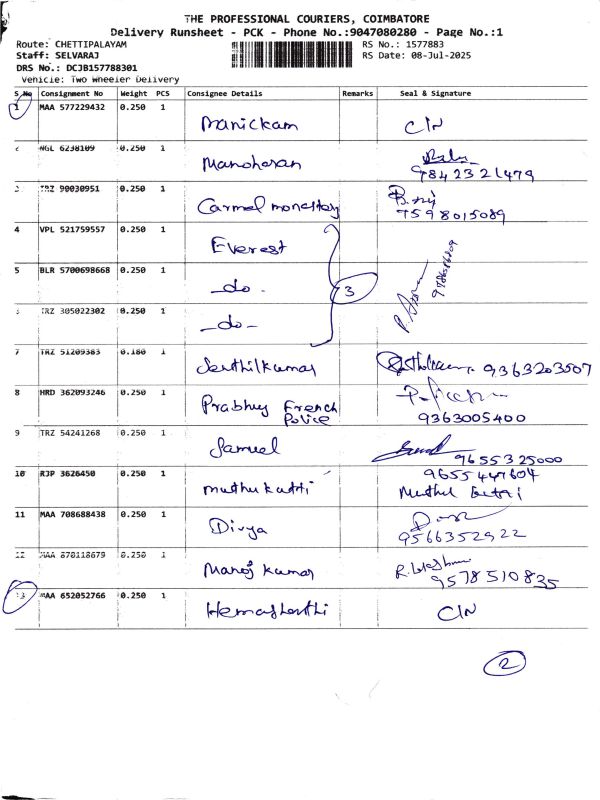 THE PROFESSIONAL COURIERS, COIMBATORE
Delivery Runsheet - PCK - Phone No.:9047080280 - Page No.:1
Route: CHETTIPALAYAM RS No.: 1577883
Staff: SELVARAJ RS Date: 08-Jul-2025
DRS No.: DCJB157788301
Vehicle: Two Wheeler Delivery
S.No Consignment No Weight PCS Consignee Details Remarks Seal & Signature
1 MAA 577229432 0.250 1
Manickam C/N
2 NGL 6238109 0.250 1
Manoharan
9842321479
3 TRZ 90030951 0.250 1
Carmel monastery
7598015089
4 VPL 521759557 0.250 1
Everest
5 BLR 5700698668 0.250 1
-do- 3
TRZ 305022302 0.250 1
-do-
7 TRZ 51209383 0.180 1
Senthilkumar 9363203507
8 HRD 362093246 0.250 1
Prabhu French
Police 9363005400
9 TRZ 54241268 0.250 1
Samuel 9655325000
10 RJP 3626450 0.250 1 9655447604
muthukutti
11 MAA 708688438 0.250 1
Divya
9566352922
12 MAA 870118679 0.250 1
Manoj kumar
9578510835
13 MAA 652052766 0.250 1
C/N
2